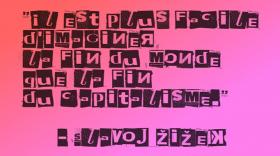 "il est plus facile
d'imaginer
la fin du monde
que la fin
du capitalisme."
- slavoj žižek